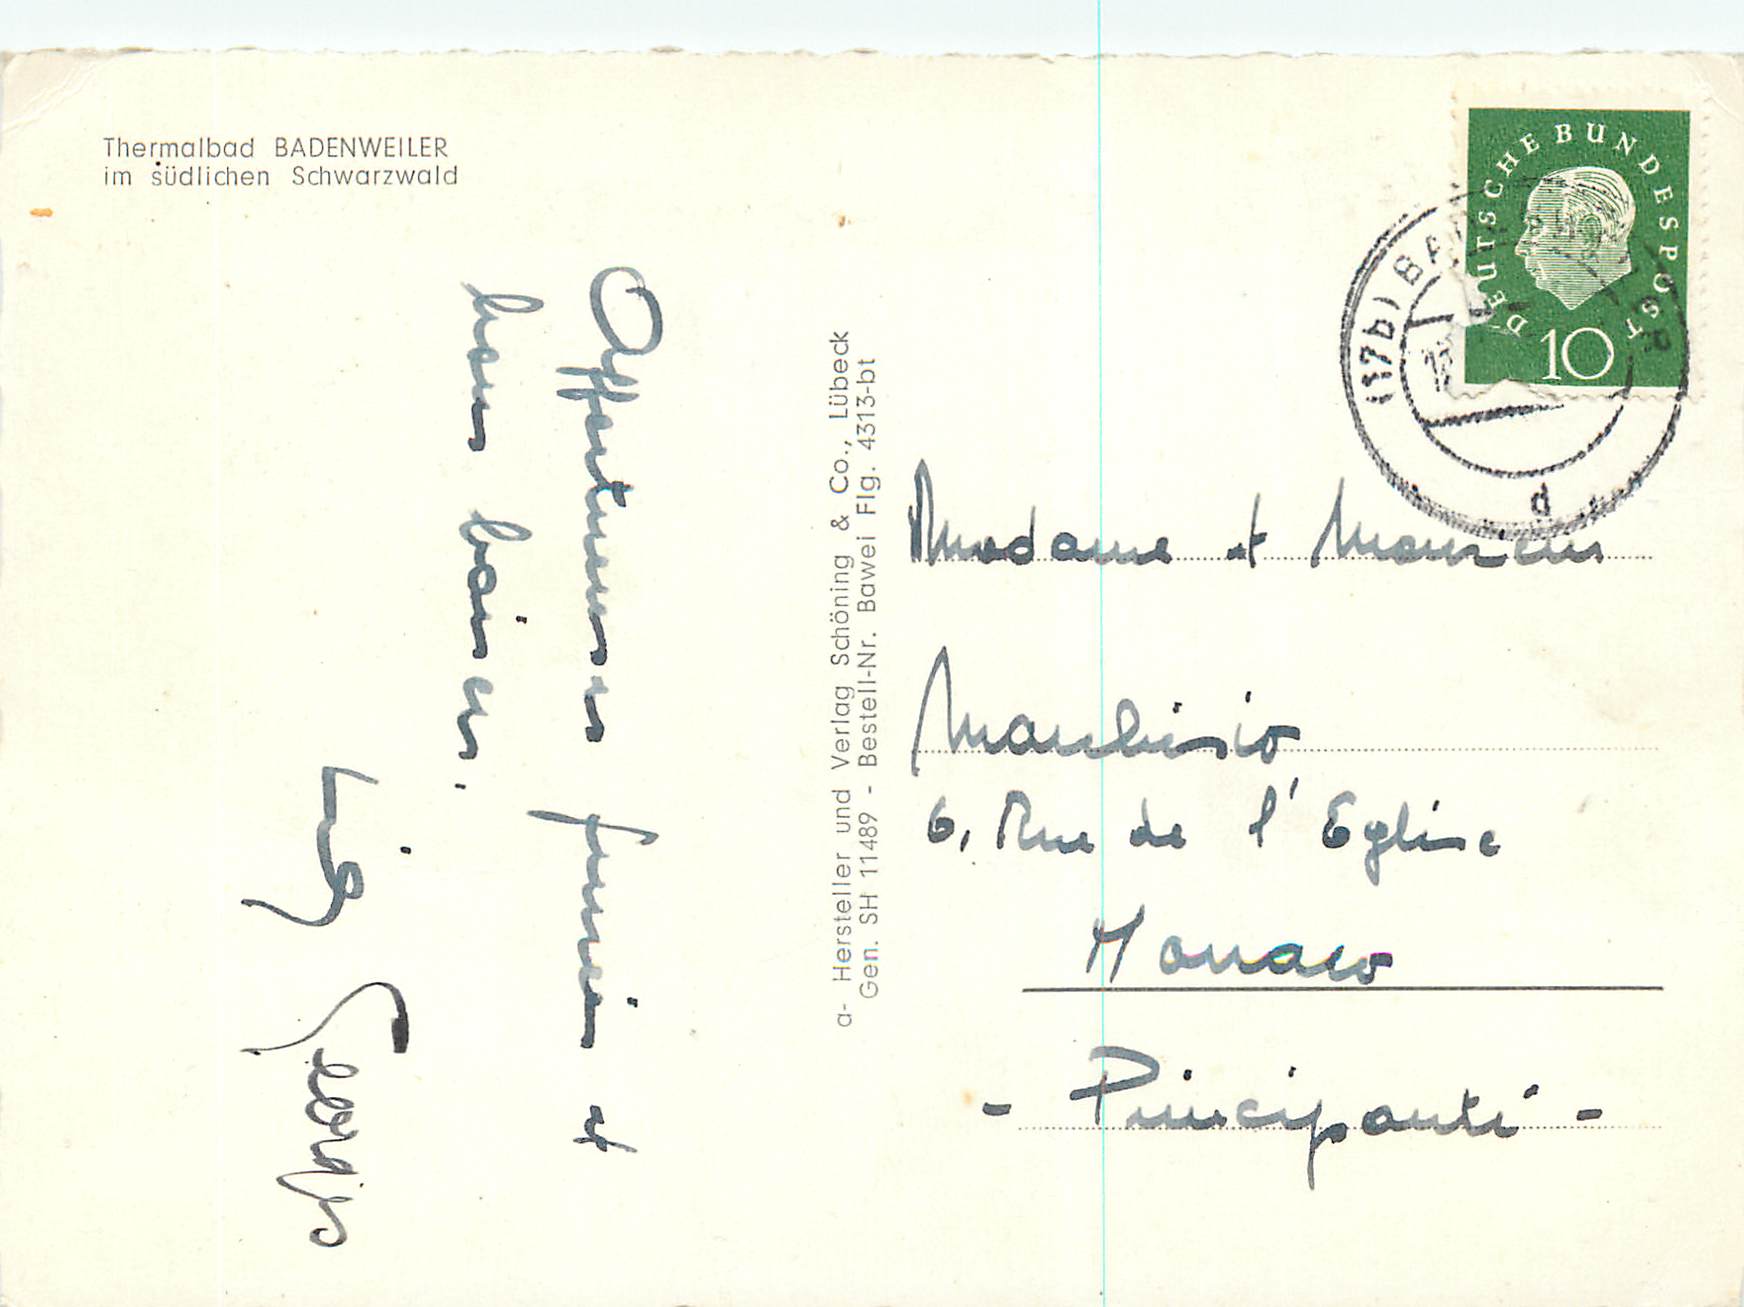 Thermalbad BADENWEILER
im südlichen Schwarzwald
DEUTSCHE BUNDESPOST
10
(17b) BA
d
et
bons baisers.
Georges
a- Hersteller und Verlag Schöning & Co., Lübeck
Gen. SH 11489 - Bestell-Nr. Bawei Flg. 4313-bt
Madame et Monsieur
6, Rue de l'Eglise
Monaco
- Principauté -